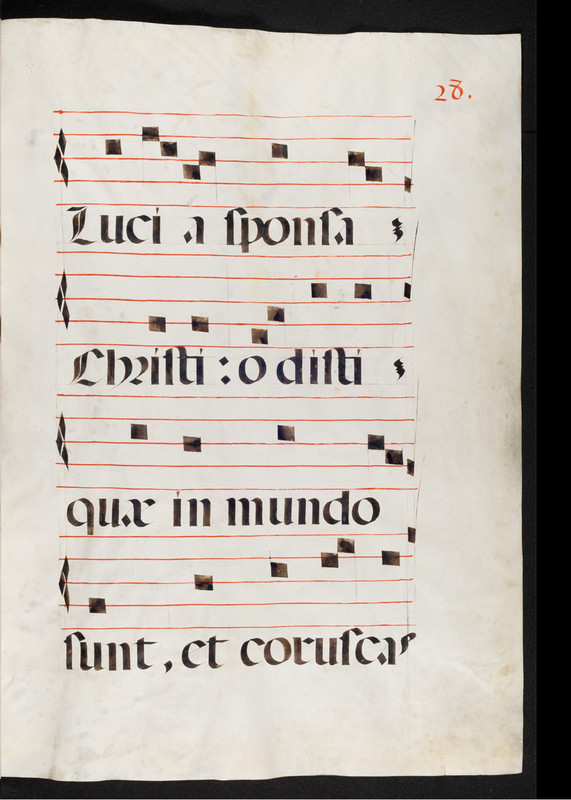 28.
Luci a sponsa
Christi : o disti
quæ in mundo
sunt, et corusca